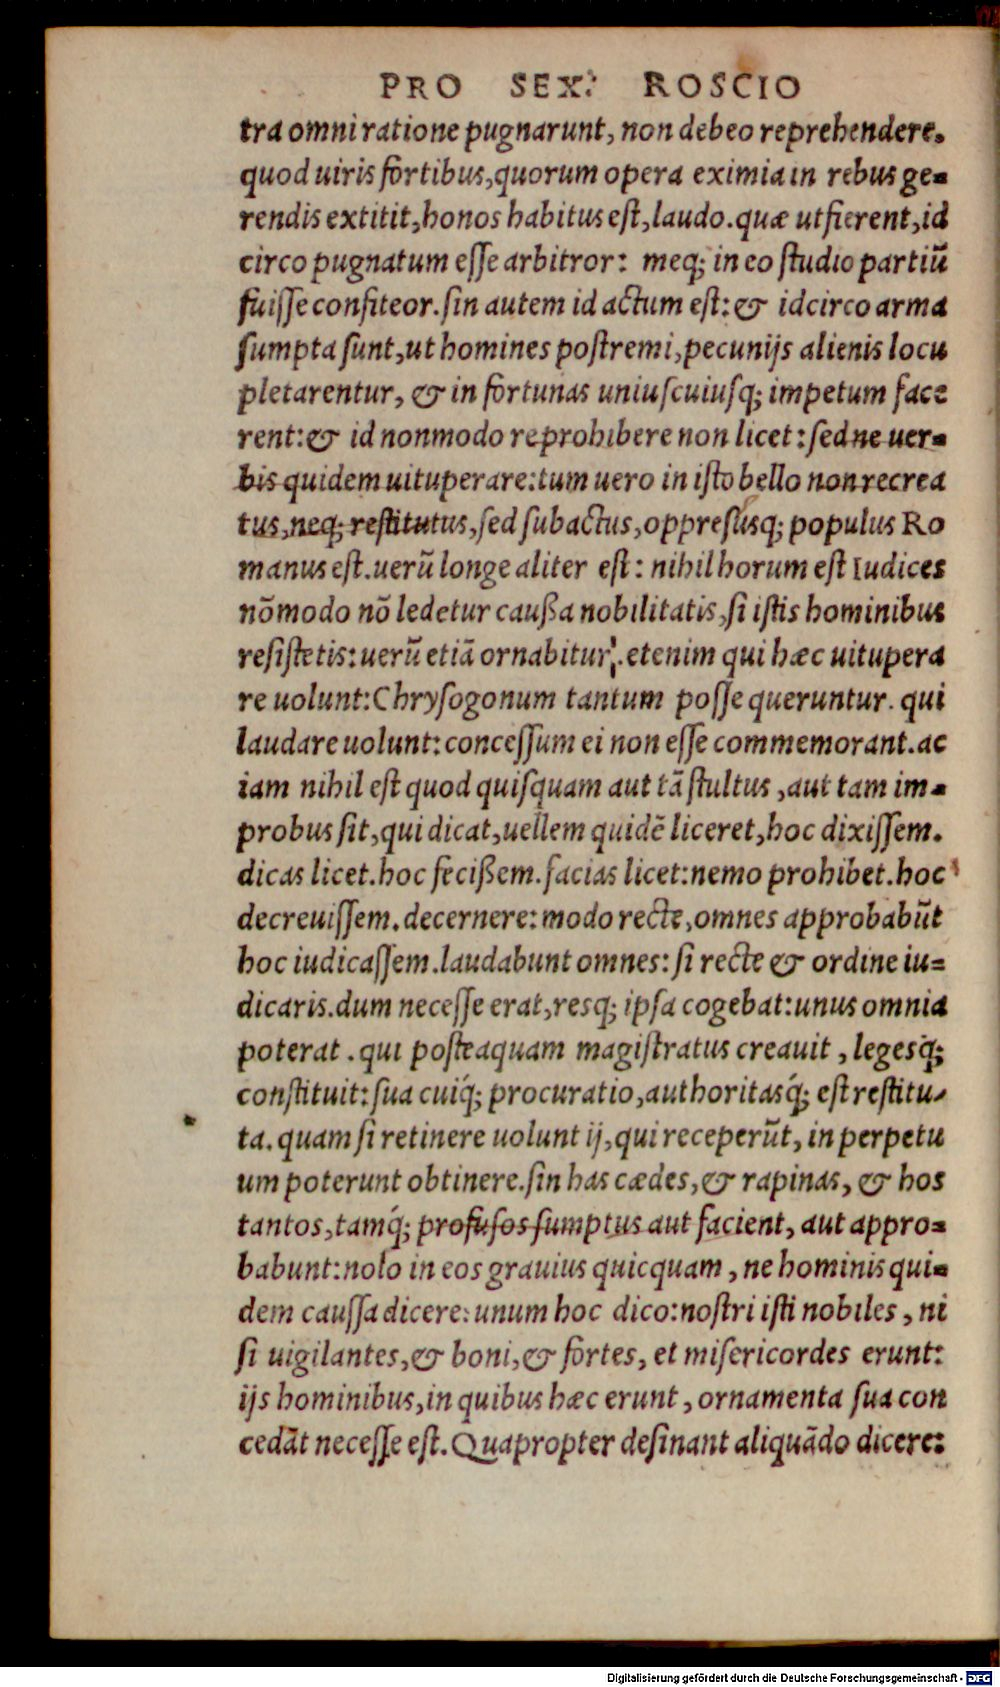 PRO SEX. ROSCIO
tra omni ratione pugnarunt, non debeo reprehendere.
quod uiris fortibus, quorum opera eximia in rebus ge-
rendis extitit, honos habitus est, laudo. quæ ut fierent, id
circo pugnatum esse arbitror: meq; in eo studio partiū
fuisse confiteor. sin autem id actum est: & idcirco arma
sumpta sunt, ut homines postremi, pecunijs alienis locu
pletarentur, & in fortunas uniuscuiusq; impetum face
rent: & id nonmodo re prohibere non licet: sed ne uer-
bis quidem uituperare: tum uero in isto bello non recrea
tus, neq; restitutus, sed subactus, oppressusq; populus Ro
manus est. uerū longe aliter est: nihil horum est Iudices
nōmodo nō ledetur caussa nobilitatis, si istis hominibus
resistetis: uerū etiā ornabitur. etenim qui hæc uitupera
re uolunt: Chrysogonum tantum posse queruntur. qui
laudare uolunt: concessum ei non esse commemorant. ac
iam nihil est quod quisquam aut tā stultus, aut tam im-
probus sit, qui dicat, uellem quidē liceret, hoc dixissem.
dicas licet. hoc fecissem. facias licet: nemo prohibet. hoc
decreuissem. decernere: modo recte, omnes approbabūt
hoc iudicassem. laudabunt omnes: si recte & ordine iu-
dicaris. dum necesse erat, resq; ipsa cogebat: unus omnia
poterat. qui posteaquam magistratus creauit, legesq́;
constituit: sua cuiq́; procuratio, authoritasq́; est restitu-
ta. quam si retinere uolunt ij, qui receperūt, in perpetu
um poterunt obtinere. sin has cædes, & rapinas, & hos
tantos, tamq́; profusos sumptus aut facient, aut appro-
babunt: nolo in eos grauius quicquam, ne hominis qui-
dem caussa dicere: unum hoc dico: nostri isti nobiles, ni
si uigilantes, & boni, & fortes, et misericordes erunt:
ijs hominibus, in quibus hæc erunt, ornamenta sua con
cedāt necesse est. Quapropter desinant aliquādo dicere:
Digitalisierung gefördert durch die Deutsche Forschungsgemeinschaft - DFG